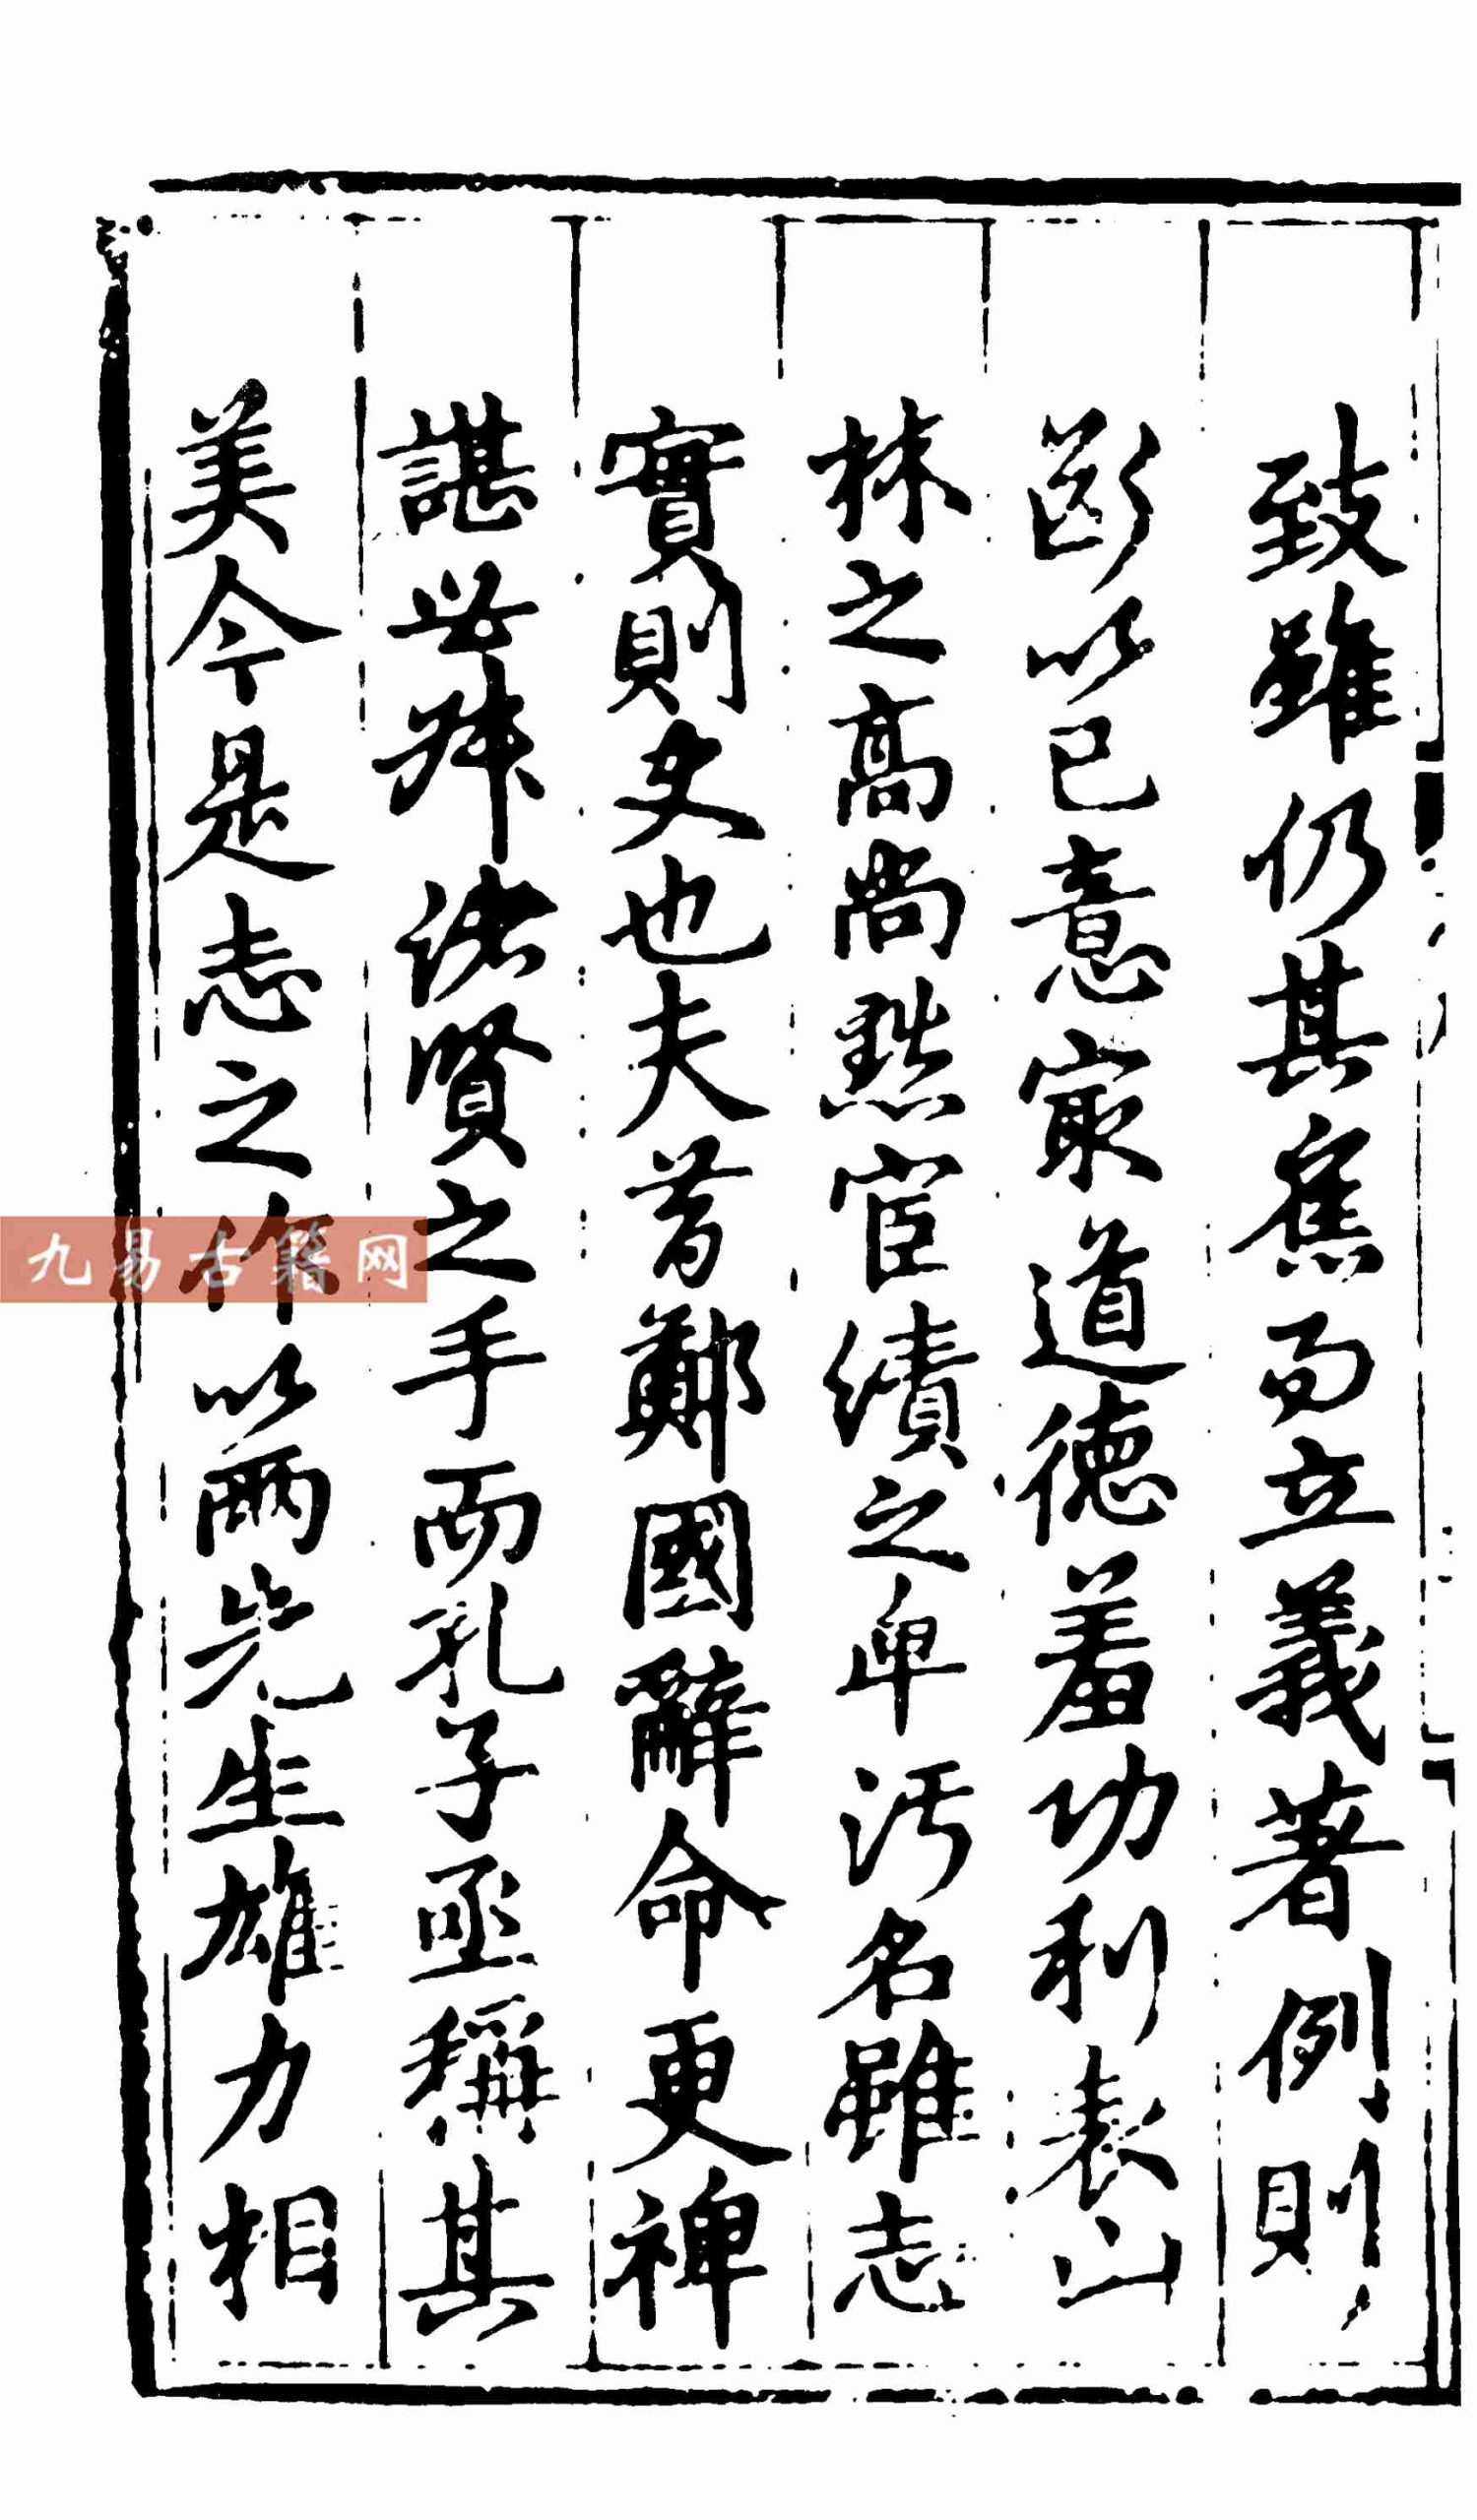 致雖仍其舊而立義著例則
斷以己意崇道德羞功利表山
林之高尚黜宦績之卑污名雖志
實則史也夫昔鄭國辭命更裨
諶世叔諸賢之手而孔子亟稱其
美今是志之作以兩先生雄力相
九易古籍网